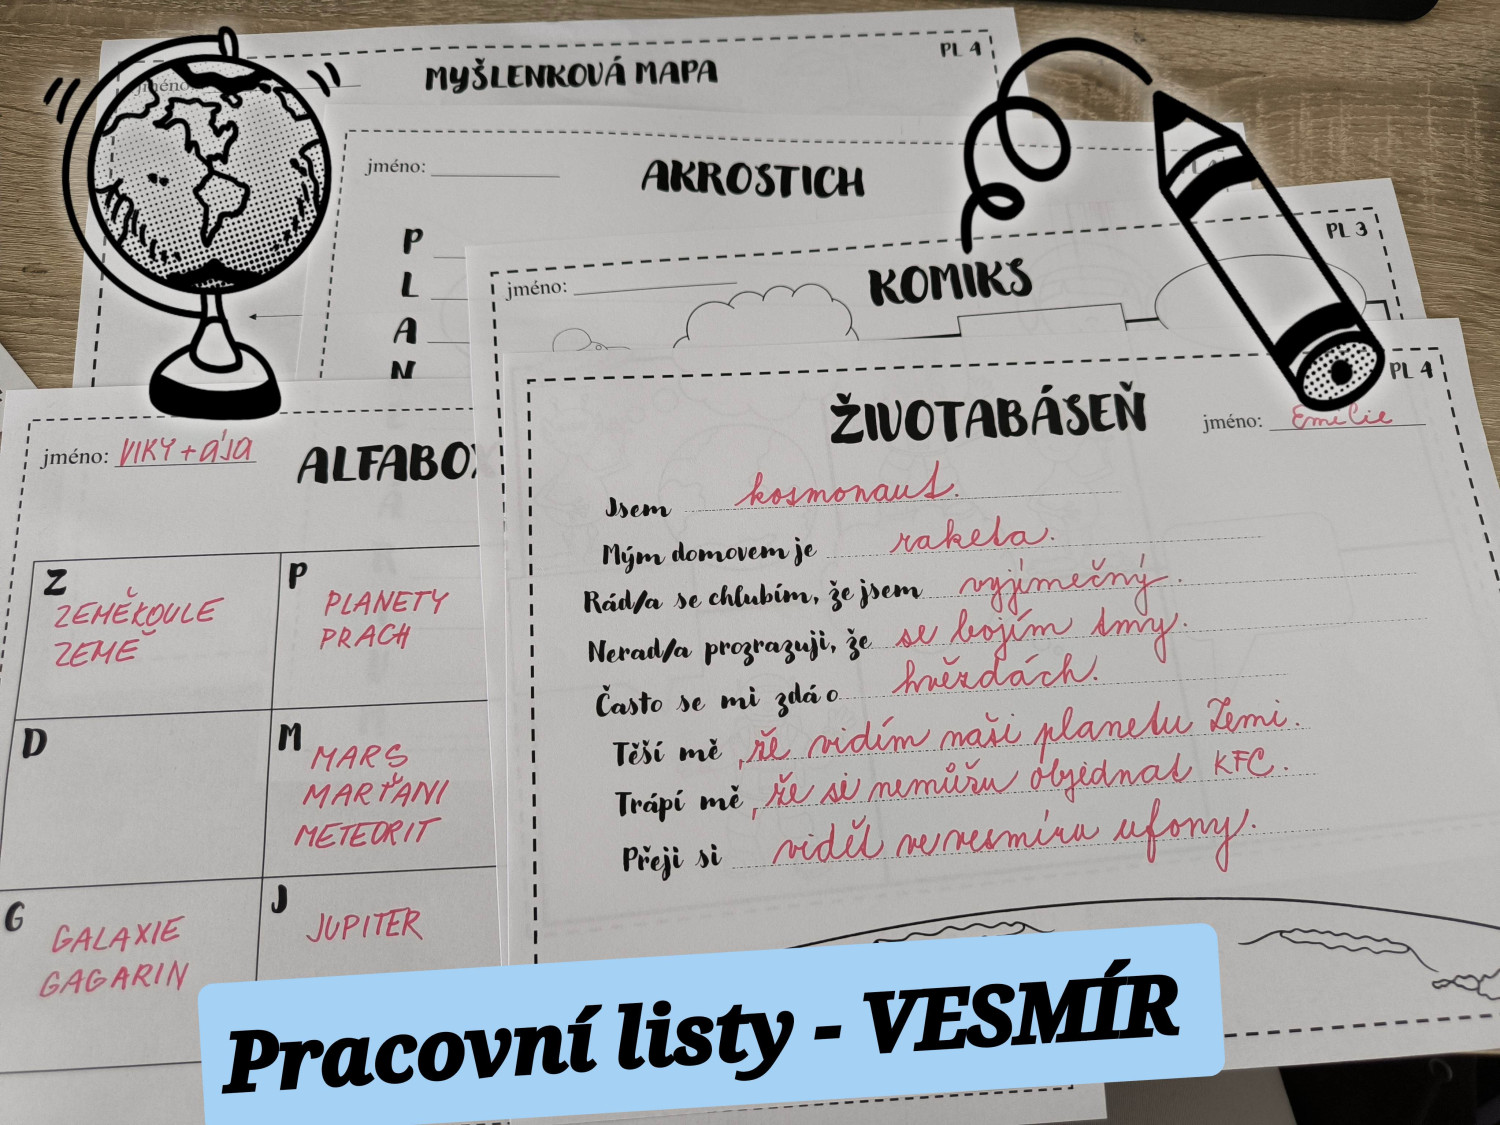 PL 4
jméno:
MYŠLENKOVÁ MAPA
jméno:
AKROSTICH
P
L
A
N
PL 3
jméno:
KOMIKS
PL 4
ŽIVOTABÁSEŇ
jméno: Emilie
Jsem kosmonaut.
Mým domovem je raketa.
Rád/a se chlubím, že jsem vyjímečný.
Nerad/a prozrazuji, že se bojím tmy.
Často se mi zdá o hvězdách.
Těší mě , že vidím naši planetu Zemi.
Trápí mě , že si nemůžu objednat KFC.
Přeji si vidět ve vesmíru ufony.
jméno: VIKY + ÁJA
ALFABOX
Z
ZEMĚKOULE
ZEMĚ
P
PLANETY
PRACH
D
M
MARS
MARŤANI
METEORIT
G
GALAXIE
GAGARIN
J
JUPITER
Pracovní listy - VESMÍR